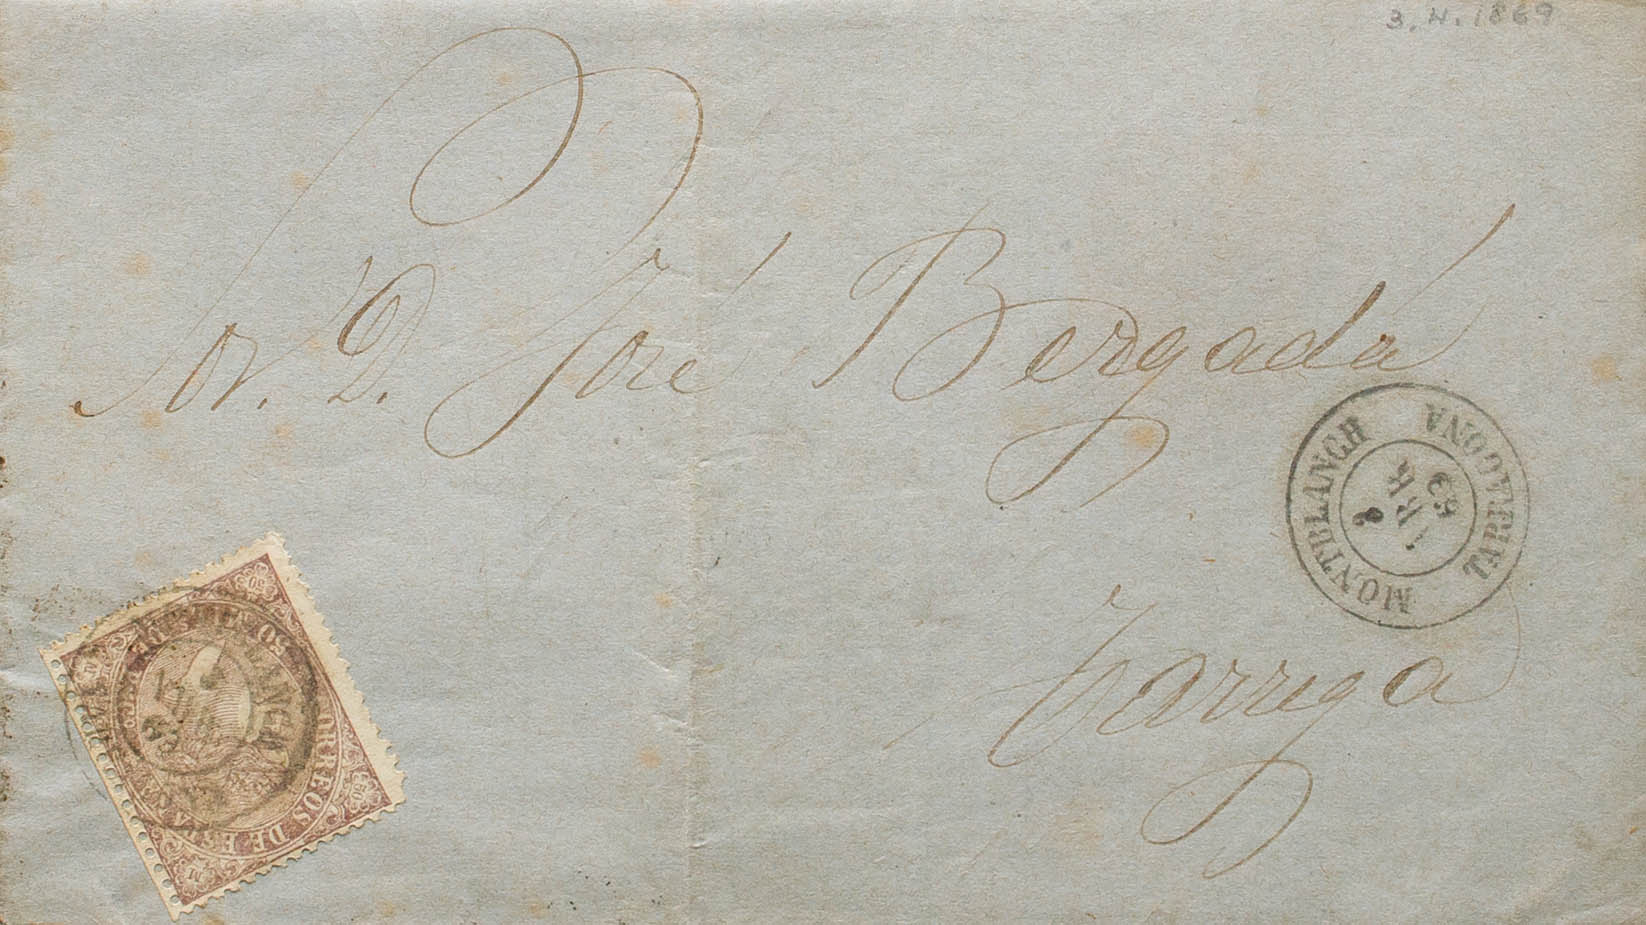 3.4.1869
Sor. D. José Bergadá
MONTBLANCH
TARRAGONA
ABR
69
Tarrega
CORREOS DE ESPAÑA
50
50
M